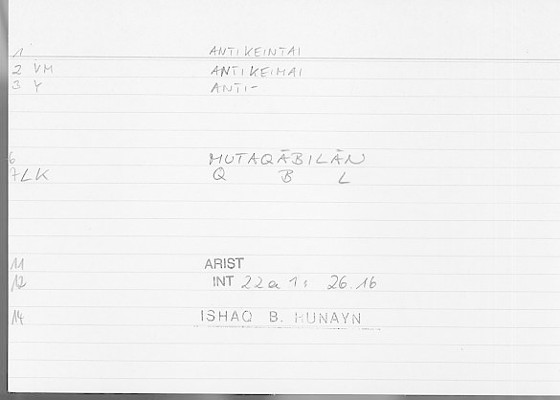 1 ANTIKEINTAI
2 VM ANTIKEIMAI
3 Y ANTI-
6 MUTAQĀBILĀN
7 LK Q B L
11 ARIST
12 INT 22a 1: 26.16
14 ISHAQ B. HUNAYN